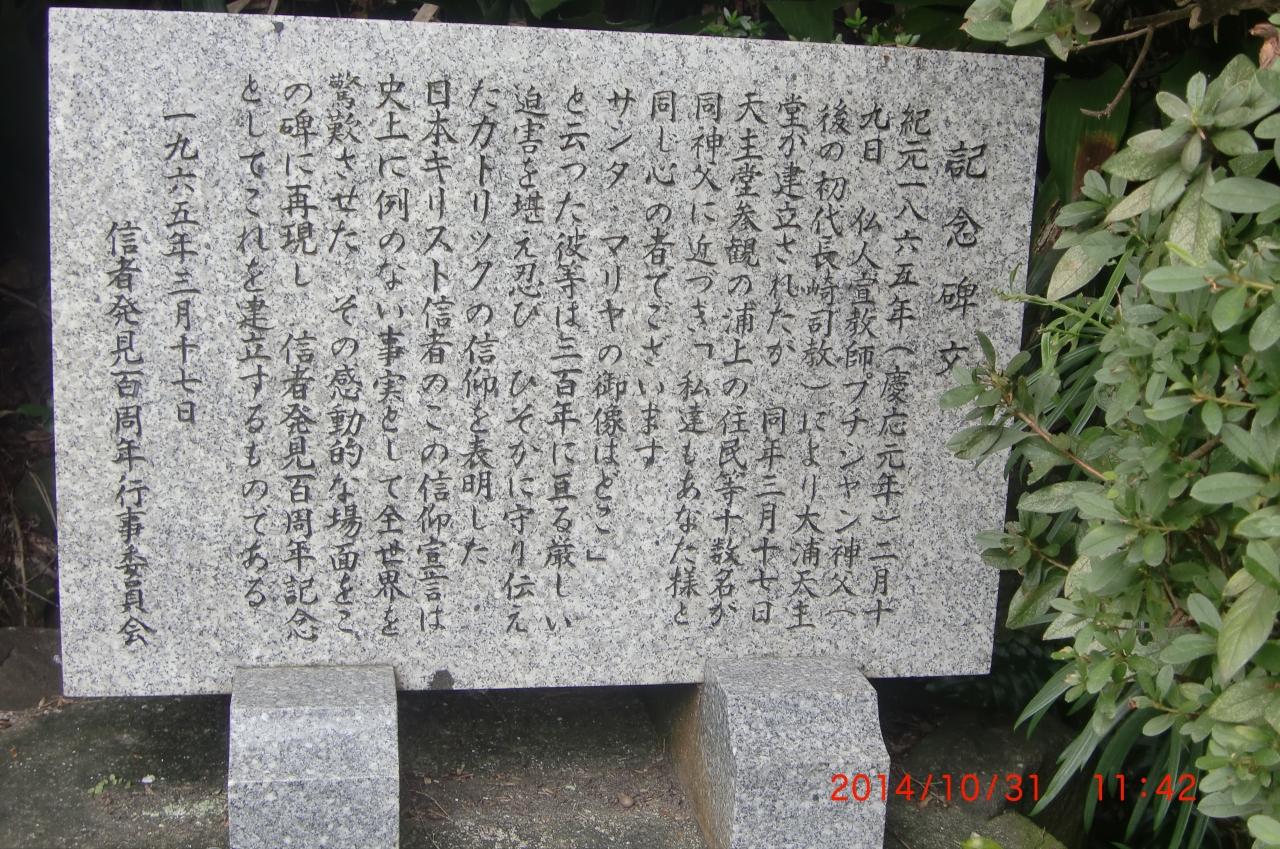 記念碑文
紀元一八六五年（慶応元年）二月十
九日　仏人宣教師プチンヤン神父（
後の初代長崎司教）により大浦天主
堂が建立されたが　同年三月十七日
天主堂参観の浦上の住民等十数名が
同神父に近づき「私達もあなた様と
同じ心の者でございます
サンタ・マリヤの御像はどこ」
と云つた彼等は三百年に亘る厳しい
迫害を堪え忍び　ひそかに守り伝え
たカトリックの信仰を表明した
日本キリスト信者のこの信仰宣言は
史上に例のない事実として全世界を
驚歎させた　その感動的な場面をこ
の碑に再現し　信者発見百周年記念
としてこれを建立するものである
一九六五年三月十七日
信者発見百周年行事委員会
2014/10/31 11:42